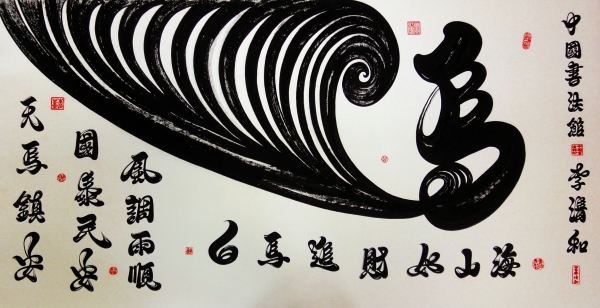 中國書法館 李潛和
馬
白馬進財如山海
風調雨順
國泰民安
天馬鎮安